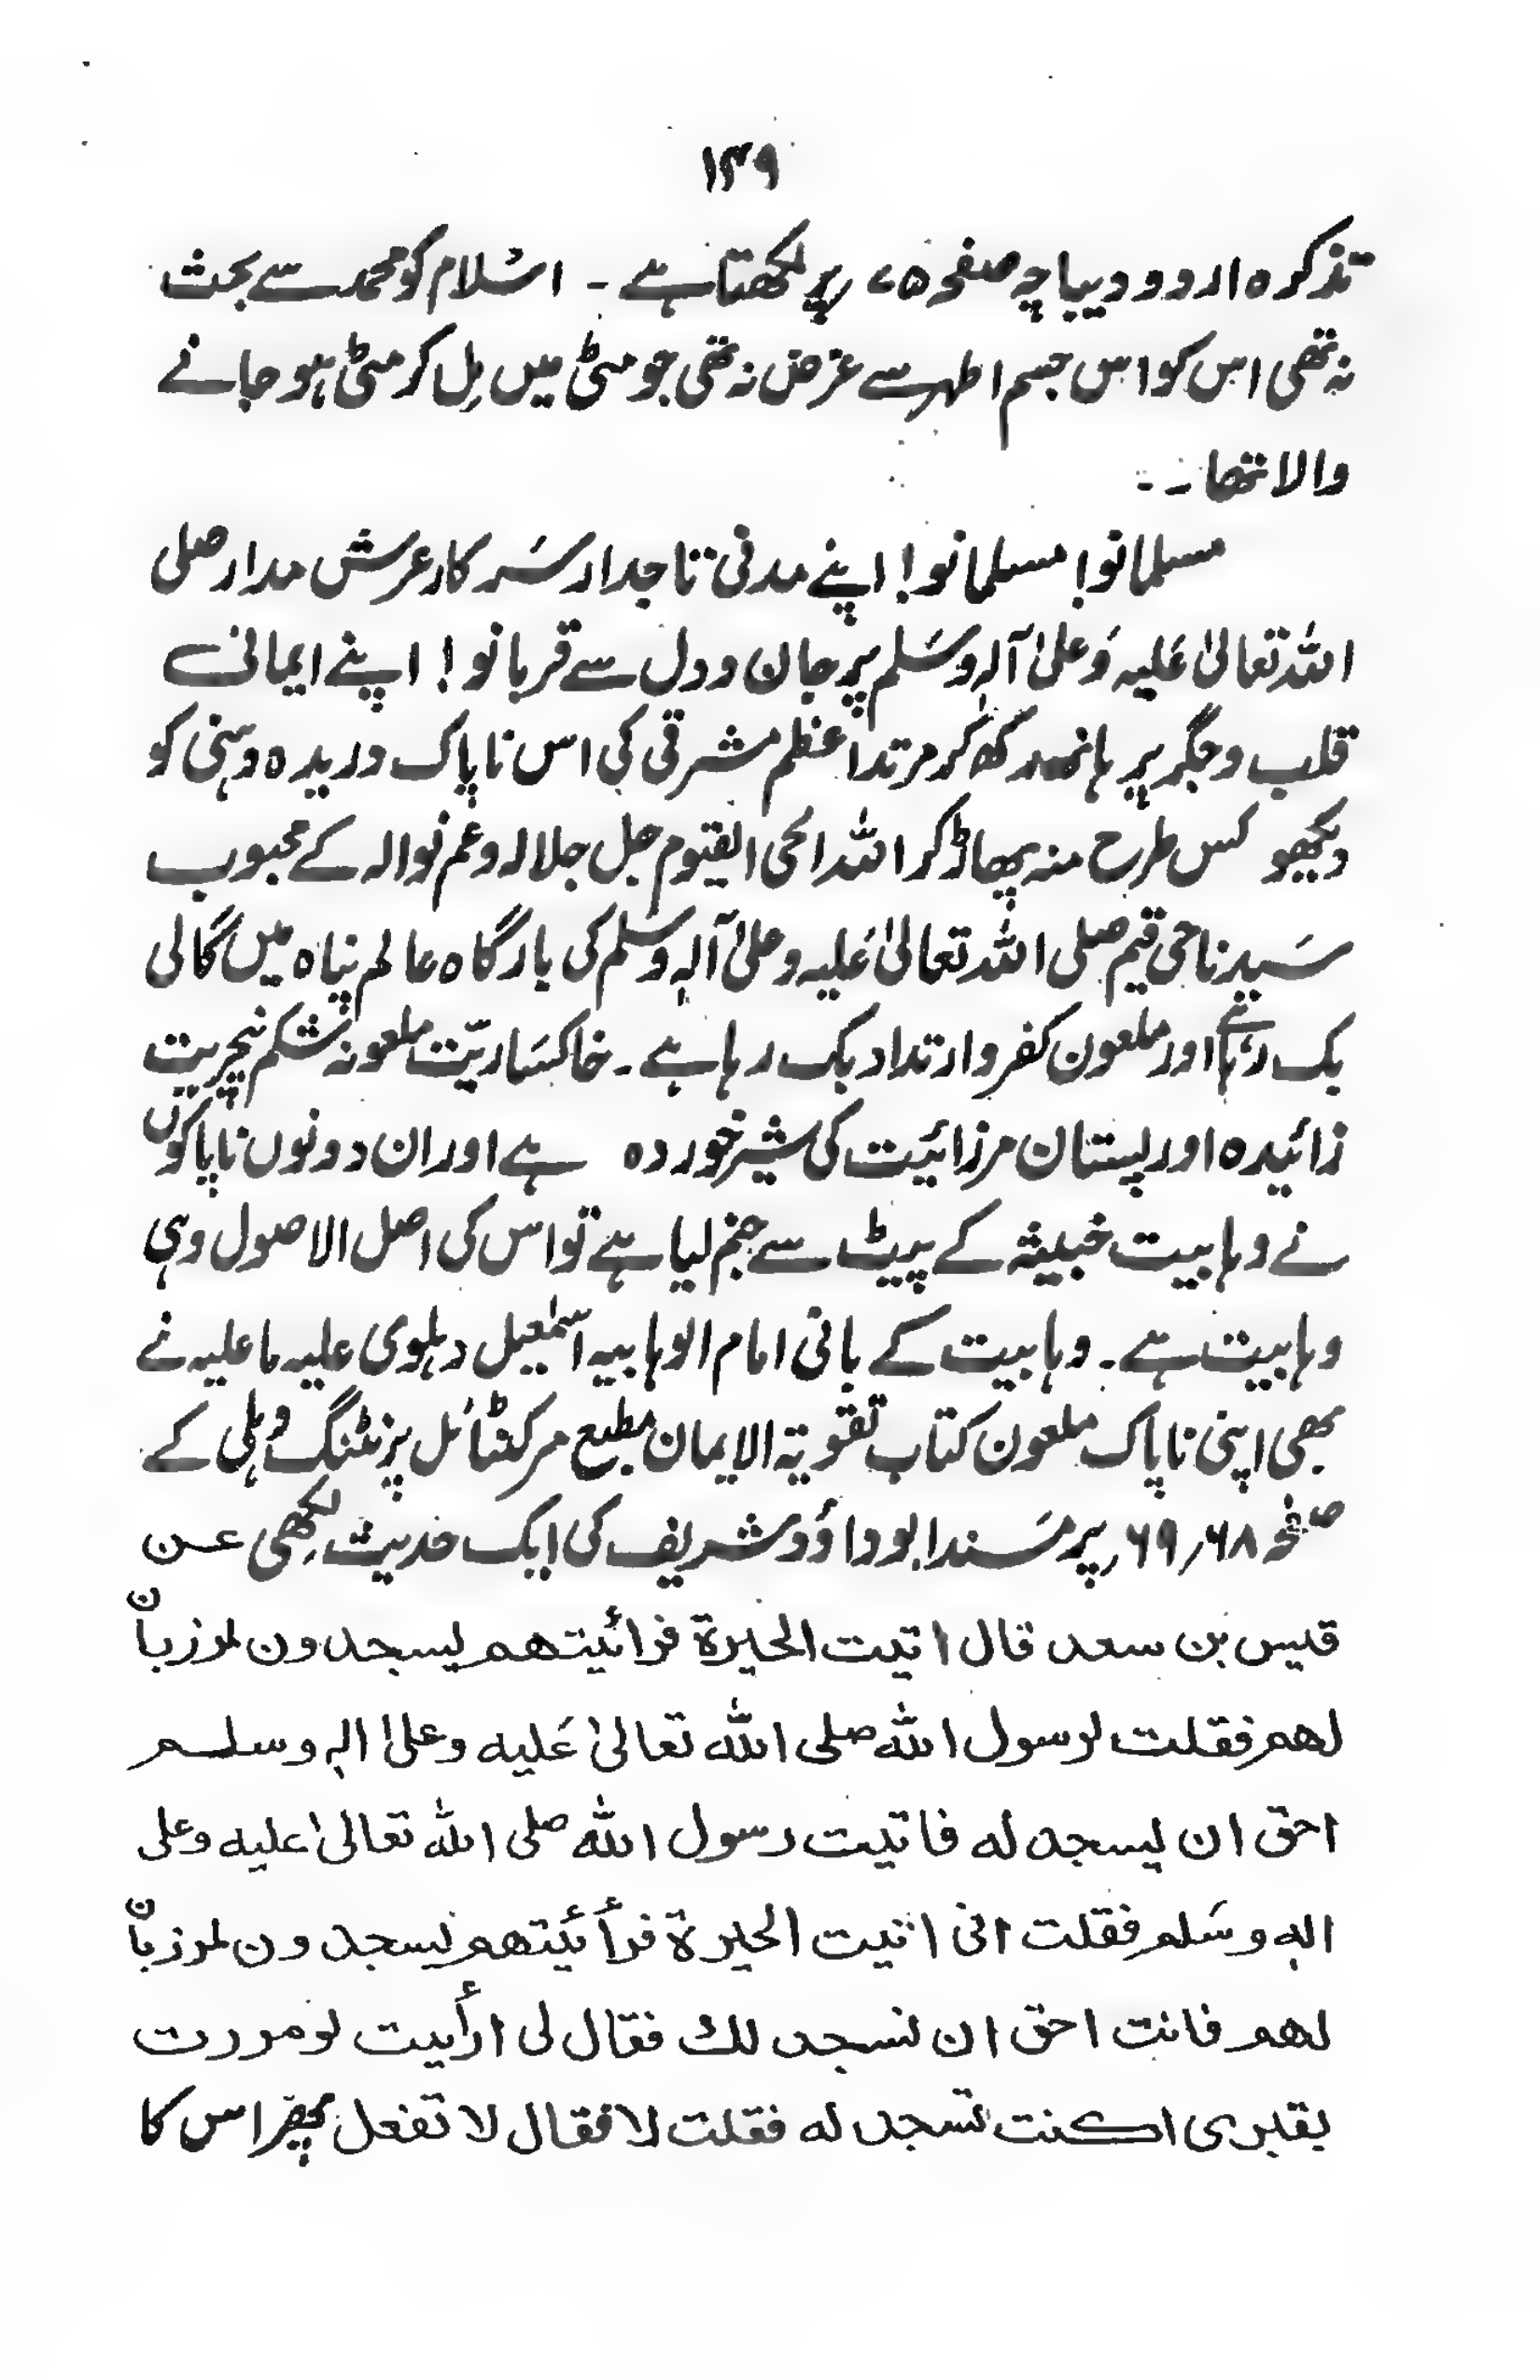 ۱۴۹
تذکرہ اردو دیباچہ صفحہ ۷۵ پر لکھتا ہے ۔ اسلام کو محمد سے بحث
نہ تھی اس کو اس جسم اطہر سے غرض نہ تھی جو مٹی میں مِل کر مٹی ہو جانے
والا تھا ۔ ۔
مسلمانو! مسلمانو! اپنے مدنی تاجدار سَرکار عرش مدار صلی
اللہ تعالیٰ عَلیہ وَعلیٰ آلہٖ وسَلم پر جان و دل سے قربانو! اپنے ایمانی
قلب و جگر پر ہاتھ رکھ کر مرتد اعظم مشرقی کی اس ناپاک دریدہ دہنی کو
دیکھو کس طرح منہ پھاڑ کر اللہ الحی القیوم جل جلالہ وعم نوالہ کے محبوب
سَیدنا حی قیم صلی اللہ تعالیٰ عَلیہ وعلیٰ آلہٖ وسَلم کی بارگاہ عالم پناہ میں گالی
بک رہا ہے اور ملعون کفر و ارتداد بک رہا ہے ۔ خاکسَاریّت ملعونہ شکم نیچریت
زائیدہ اور پستان مرزائیَت کی شیر خوردہ ہے اور ان دونوں ناپاکوں
نے وہابیت خبیثہ کے پیٹ سے جنم لیا ہے تو اس کی اصل الاصول وہی
وہابیت ہے ۔ وہابیت کے بانی امام الوہابیہ اسمٰعیل دہلوی علیہ ما علیہ نے
بھی اپنی ناپاک ملعون کتاب تقویۃ الایمان مطبع مرکنٹائل پرنٹنگ دہلی کے
صفحہ ۶۸؍ ۶۹؍ پر مسَند ابوداؤد شریف کی ایک حدیث لِکھی عن
قیس بن سعد قال اتیت الحیرۃ فرائیتھم یسجدون لمرزبان
لھم فقلت لرسول اللہ صلی اللہ تعالیٰ عَلیہ وعلیٰ الہٖ وسلم
احق ان یسجد لہ فاتیت رسول اللہ صلی اللہ تعالیٰ علیہ وعلی
الہٖ وسَلم فقلت انی اتیت الحیرۃ فرأئیتھم یسجدون لمرزبان
لھم فانت احق ان نسجد لک فقال لی ارأیت لو مررت
بقبری اکنت تسجد لہ فقلت لا فقال لا تفعل پھر اس کا